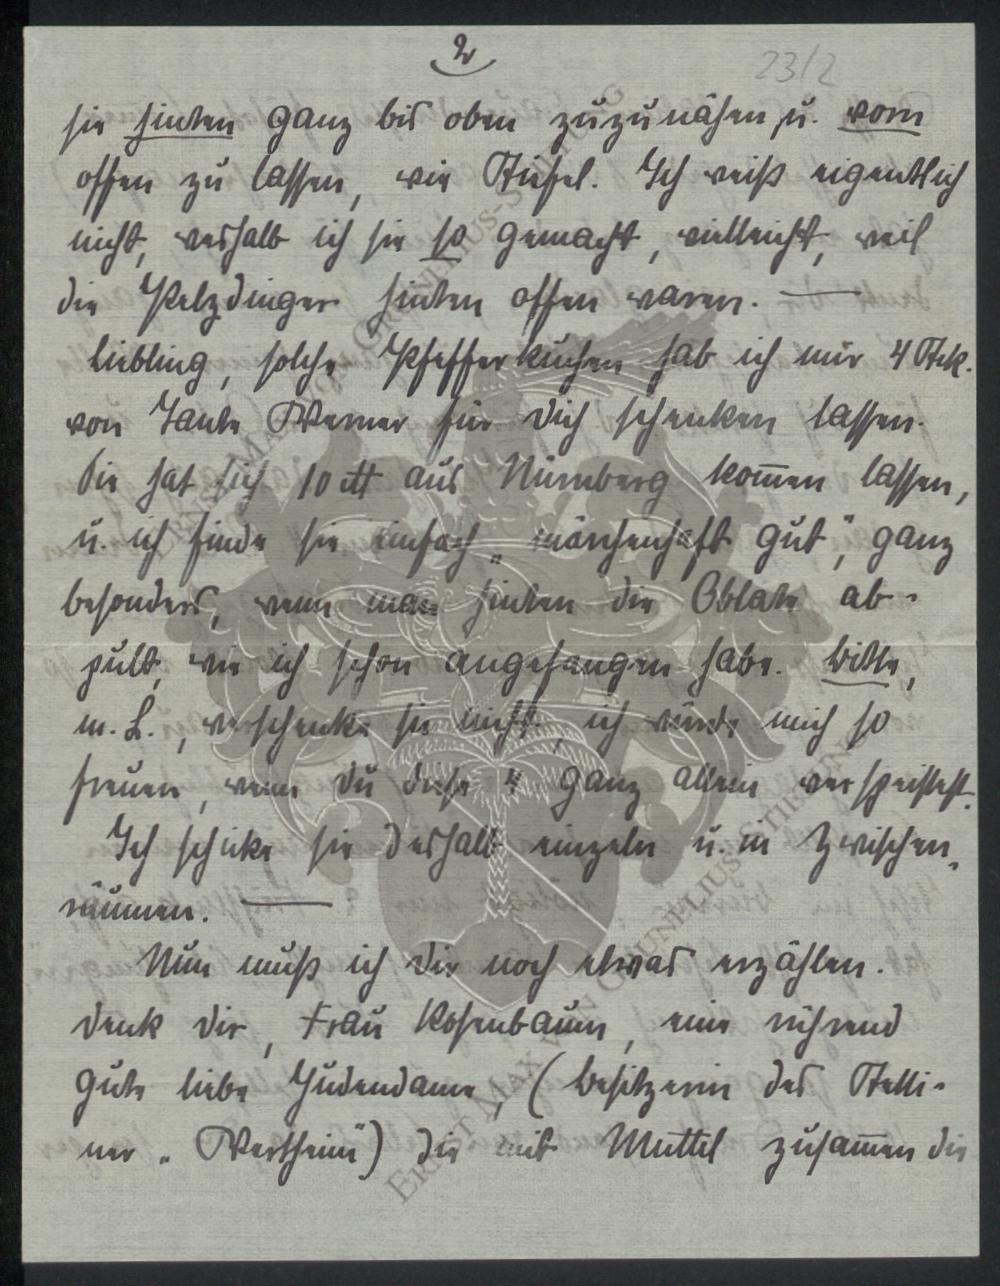 2
23/2
sie hinten ganz bis oben zuzunähen, u. vorn
offen zu lassen, wie Stiefel. Ich weiß eigentlich
nicht, weshalb ich sie so gemacht, vielleicht, weil
die Pelzdinger hinten offen waren. —
Liebling, solche Pfefferkuchen hab ich mir 4 Stck.
von Tante Werner für Dich schenken lassen.
Sie hat sich 10 M aus Nürnberg kom̅en lassen,
u. ich finde sie einfach „märchenhaft gut", ganz
besonders, wenn man hinten die Oblate ab-
pult, wie ich schon angefangen habe. Bitte,
m. L., verschenke sie nicht, ich würde mich so
freuen, wenn Du diese 4 ganz allein verspeistest.
Ich schicke sie deshalb einzeln u. in Zwischen-
räumen. —
Nun muß ich Dir noch etwas erzählen.
Denk Dir, Frau Rosenbaum, eine rührend
gute liebe Judendame, (Besitzerin des Stetti-
ner „Wertheim") die mit Muttel zusam̅en die